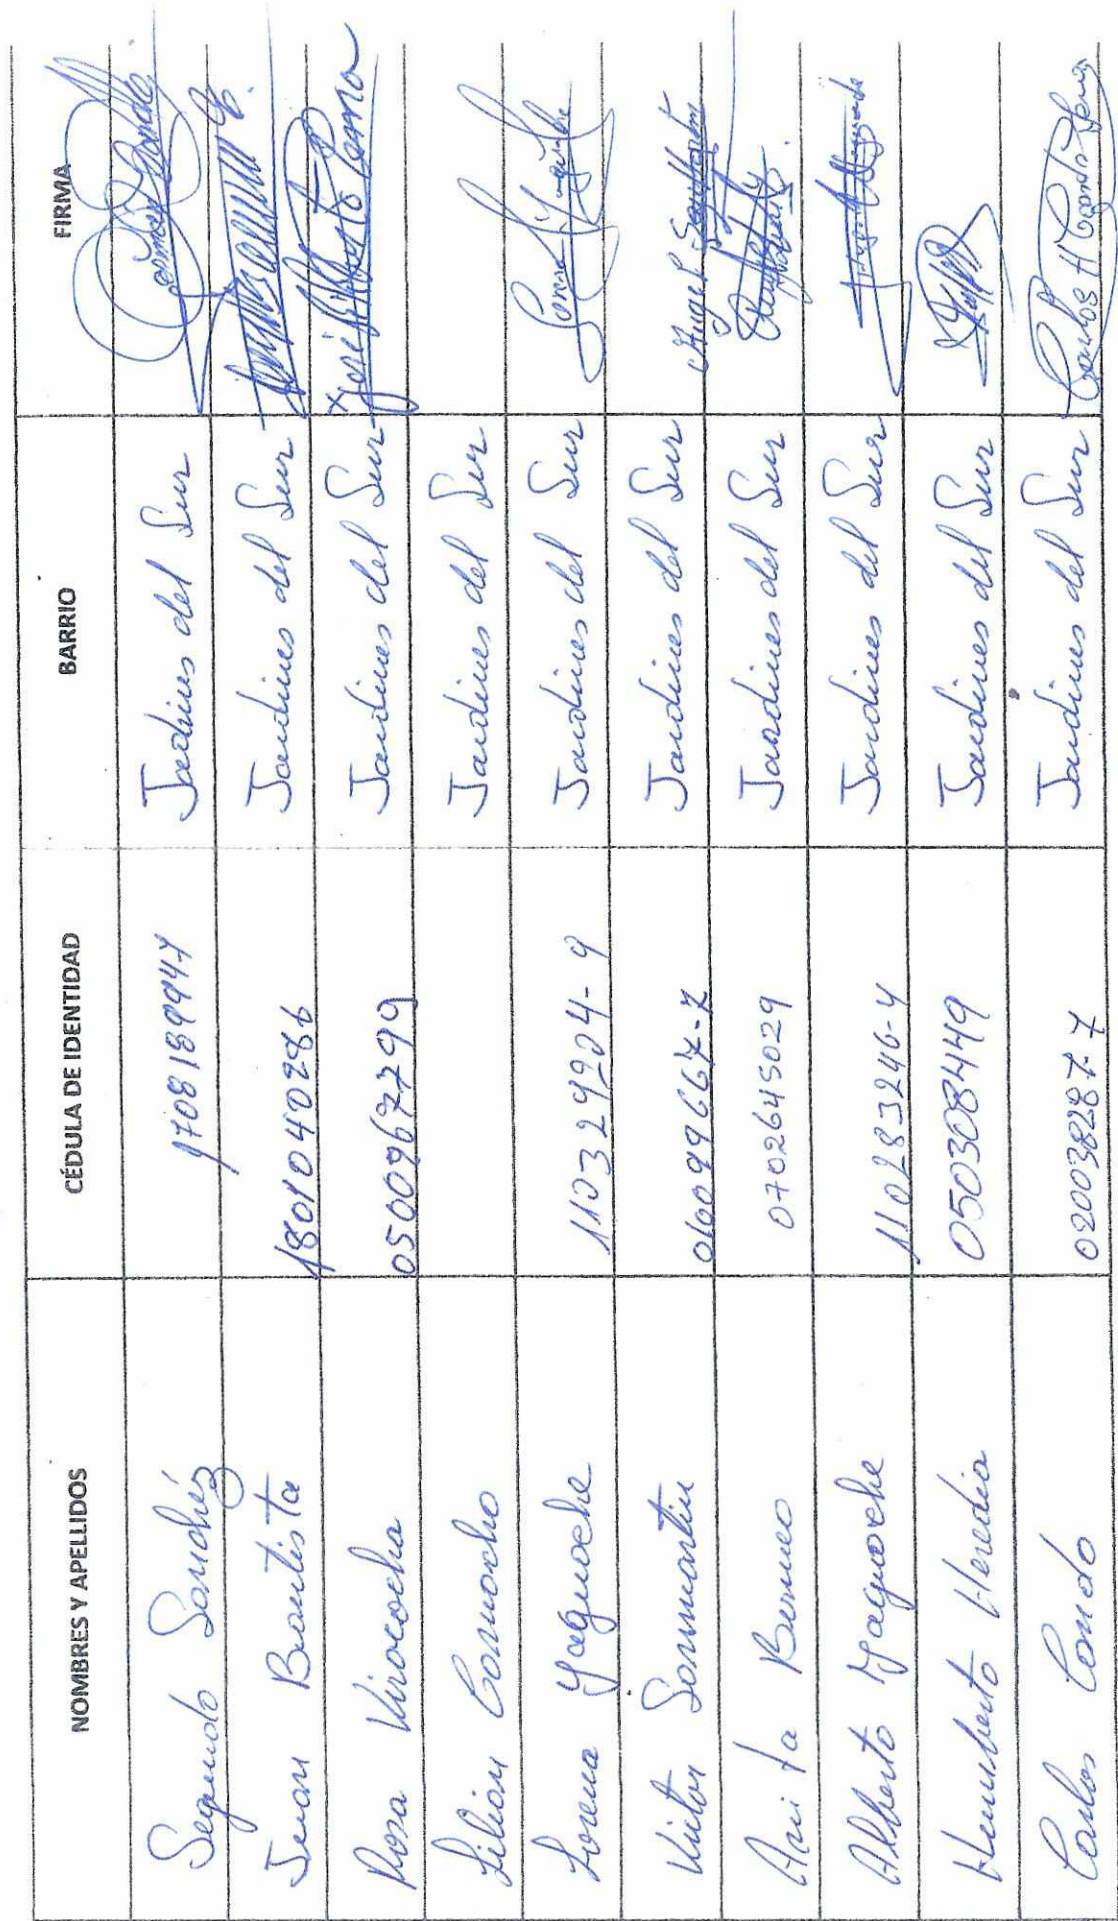 NOMBRES Y APELLIDOS CÉDULA DE IDENTIDAD BARRIO FIRMA
Segundo Sanchéz 1708189947 Jardines del Sur
Juan Bautista 1801040286 Jardines del Sur
Rosa Viracocha 0500967299 Jardines del Sur José Alberto Lema
Lilian Camacho Jardines del Sur
Lorena Yaguache 110329924-9 Jardines del Sur
Victor Sanmartin 010099667-7 Jardines del Sur Angel Sanmartin
Anita Burneo 0702645029 Jardines del Sur
Alberto Yaguache 110283246-4 Jardines del Sur
Humberto Heredia 050308449 Jardines del Sur
Carlos Condo 020038287-7 Jardines del Sur Carlos H Condo